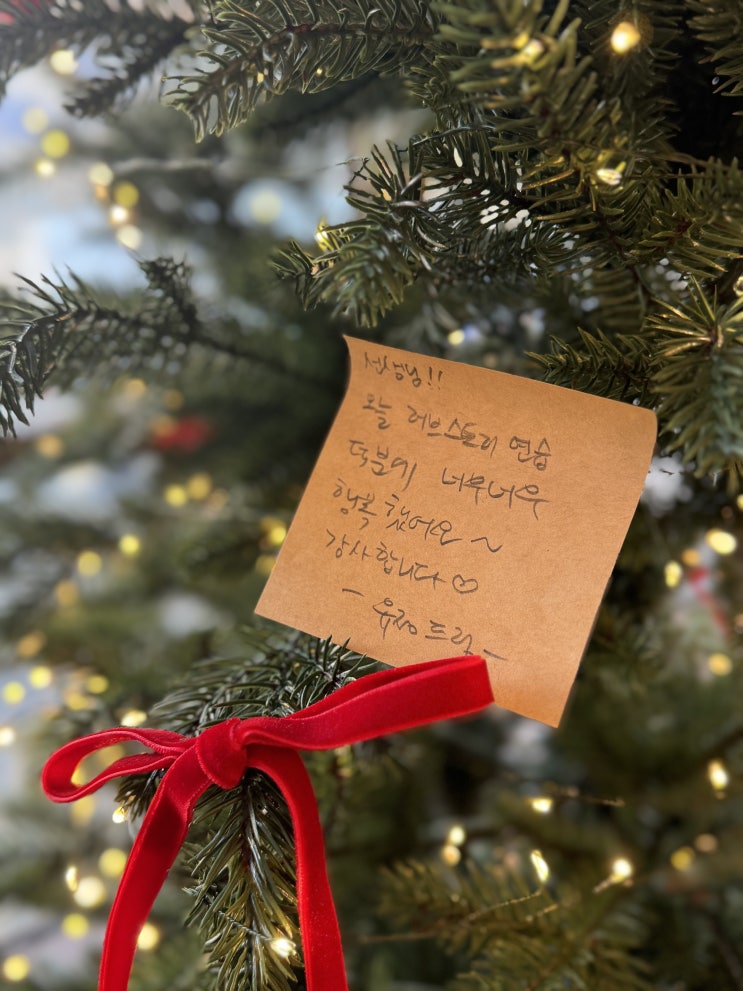 선생님!!
오늘 허브스토리 연습
덕분에 너무너무
행복했어요~
감사합니다♡
- 유정 드림 -